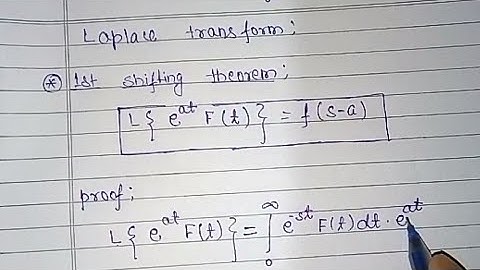 Laplace transform;
* 1st shifting theorem;
L{ e^at F(t) } = f(s-a)
proof;
L{ e^at F(t) } = ∫_0^∞ e^-st F(t) dt · e^at